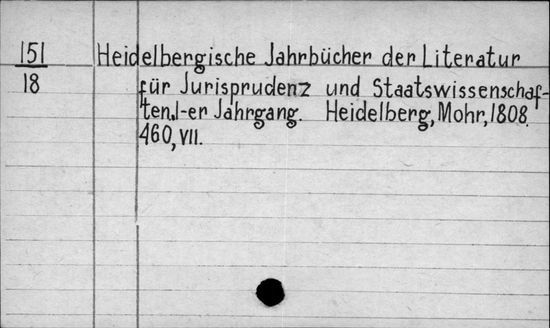 151 Heidelbergische Jahrbücher der Literatur
18 für Jurisprudenz und Staatswissenschaf-
ten.1-er Jahrgang. Heidelberg, Mohr, 1808.
460, VII.